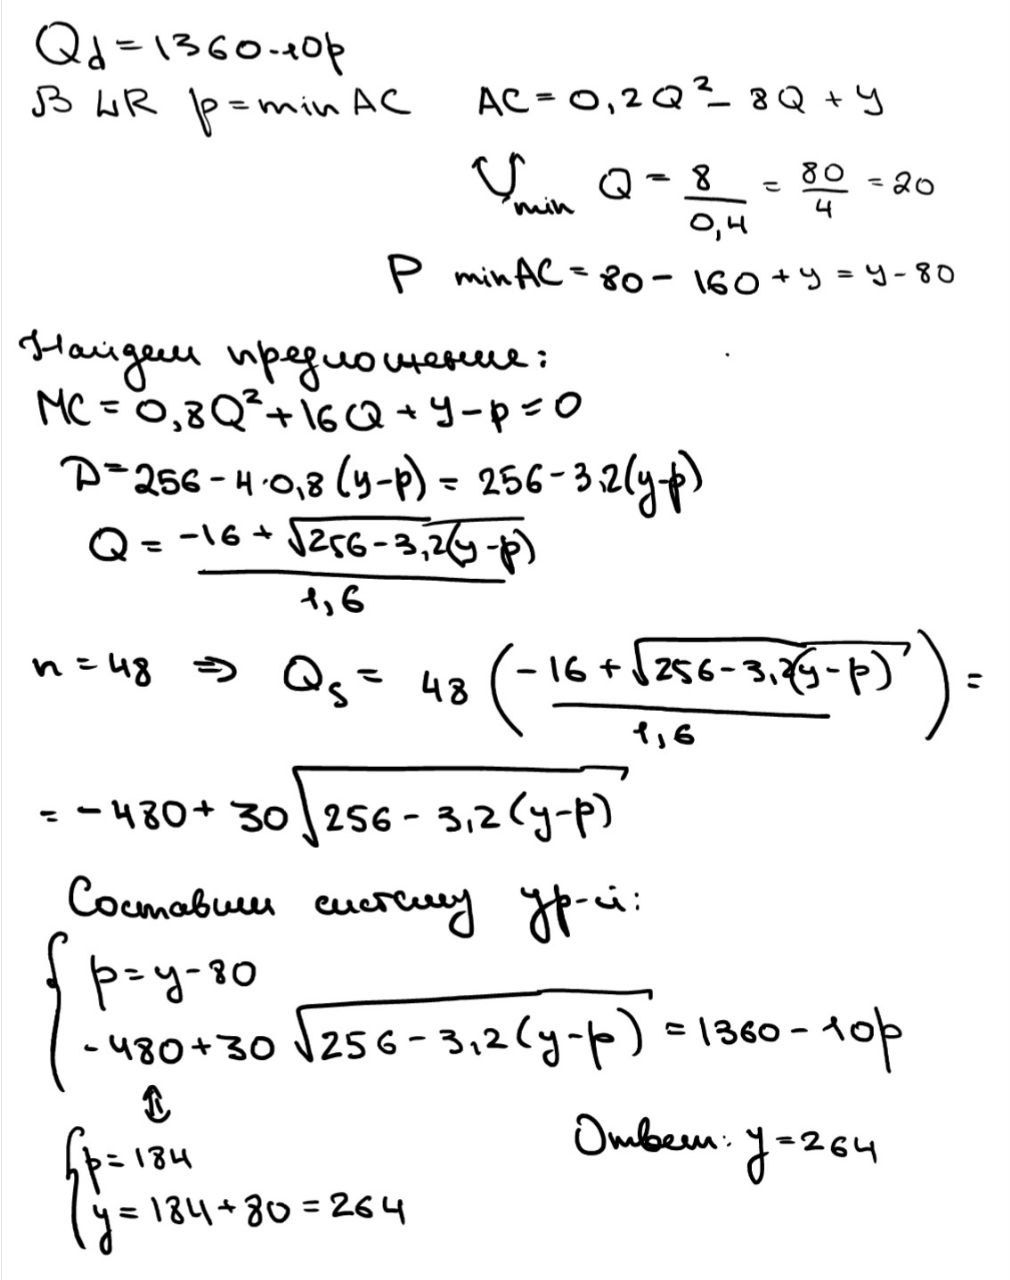 Qd = 1360-10p
В LR p = min AC AC = 0,2Q² - 8Q + y
min Q = 8/0,4 = 80/4 = 20
P min AC = 80 - 160 + y = y - 80
Найдем предложение:
MC = 0,8Q² + 16Q + y - p = 0
D = 256 - 4·0,8(y-p) = 256 - 3,2(y-p)
Q = (-16 + √(256-3,2(y-p)))/1,6
n = 48 ⇒ Qs = 48 ((-16 + √(256-3,2(y-p)))/1,6) =
= -480 + 30√(256 - 3,2(y-p))
Составим систему ур-й:
{ p = y - 80
-480 + 30√(256 - 3,2(y-p)) = 1360 - 10p
⇕
{ p = 184
y = 184 + 80 = 264
Ответ: y = 264